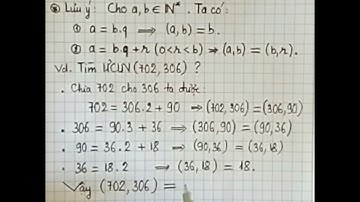 ⊛ Lưu ý: Cho a, b ∈ ℕ*. Ta có:
① a = b.q ⟹ (a, b) = b.
② a = b.q + r (0<r<b) ⇒ (a,b) = (b,r).
Vd. Tìm ƯCLN (702, 306) ?
• Chia 702 cho 306 ta được
702 = 306.2 + 90 ⇒ (702, 306) = (306,90)
• 306 = 90.3 + 36 ⇒ (306,90) = (90,36)
• 90 = 36.2 + 18 ⇒ (90,36) = (36,18)
• 36 = 18.2 ⟹ (36,18) = 18.
Vậy (702, 306) =